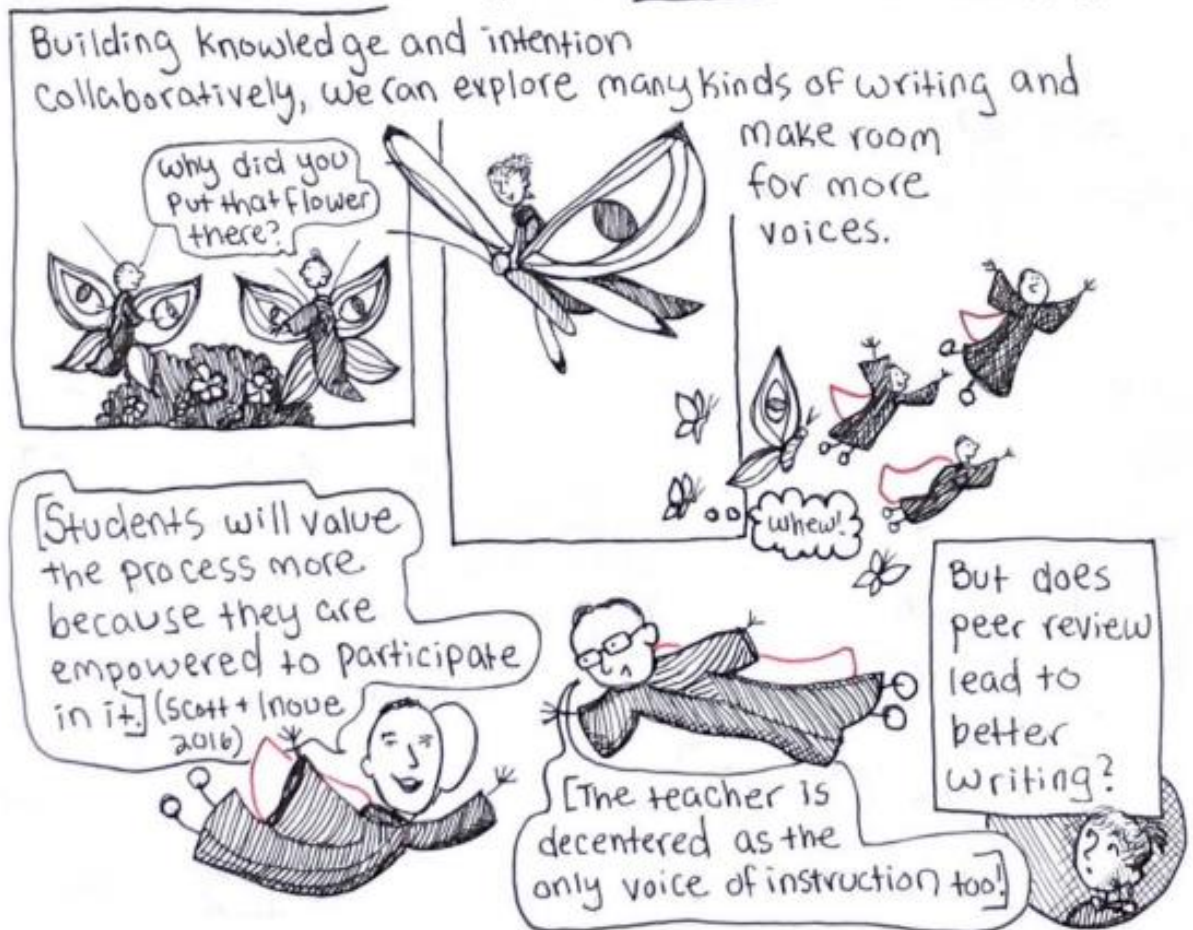 Building knowledge and intention
collaboratively, we can explore many kinds of writing and
make room
for more
voices.
Why did you
put that flower
there?
whew!
[Students will value
the process more
because they are
empowered to participate
in it.] (Scott + Inoue
2016)
[The teacher is
decentered as the
only voice of instruction too!]
But does
peer review
lead to
better
writing?